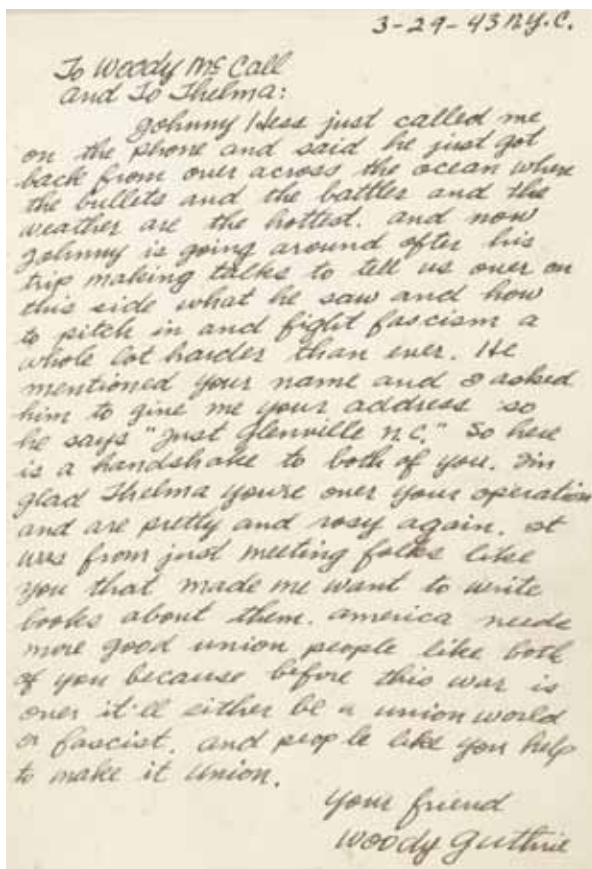 3-29-43 N.Y.C.
To Woody McCall
and To Thelma:
Johnny Hess just called me
on the phone and said he just got
back from over across the ocean where
the bullets and the battles and the
weather are the hottest. and now
Johnny is going around after his
trip making talks to tell us over on
this side what he saw and how
to pitch in and fight fascism a
whole lot harder than ever. He
mentioned your name and I asked
him to give me your address so
he says "just Glenville N.C." So here
is a handshake to both of you. I'm
glad Thelma you're over your operation
and are pretty and rosy again. It
was from just meeting folks like
you that made me want to write
books about them. america needs
more good union people like both
of you because before this war is
over it'll either be a union world
or fascist. and people like you help
to make it union.
your friend
Woody Guthrie